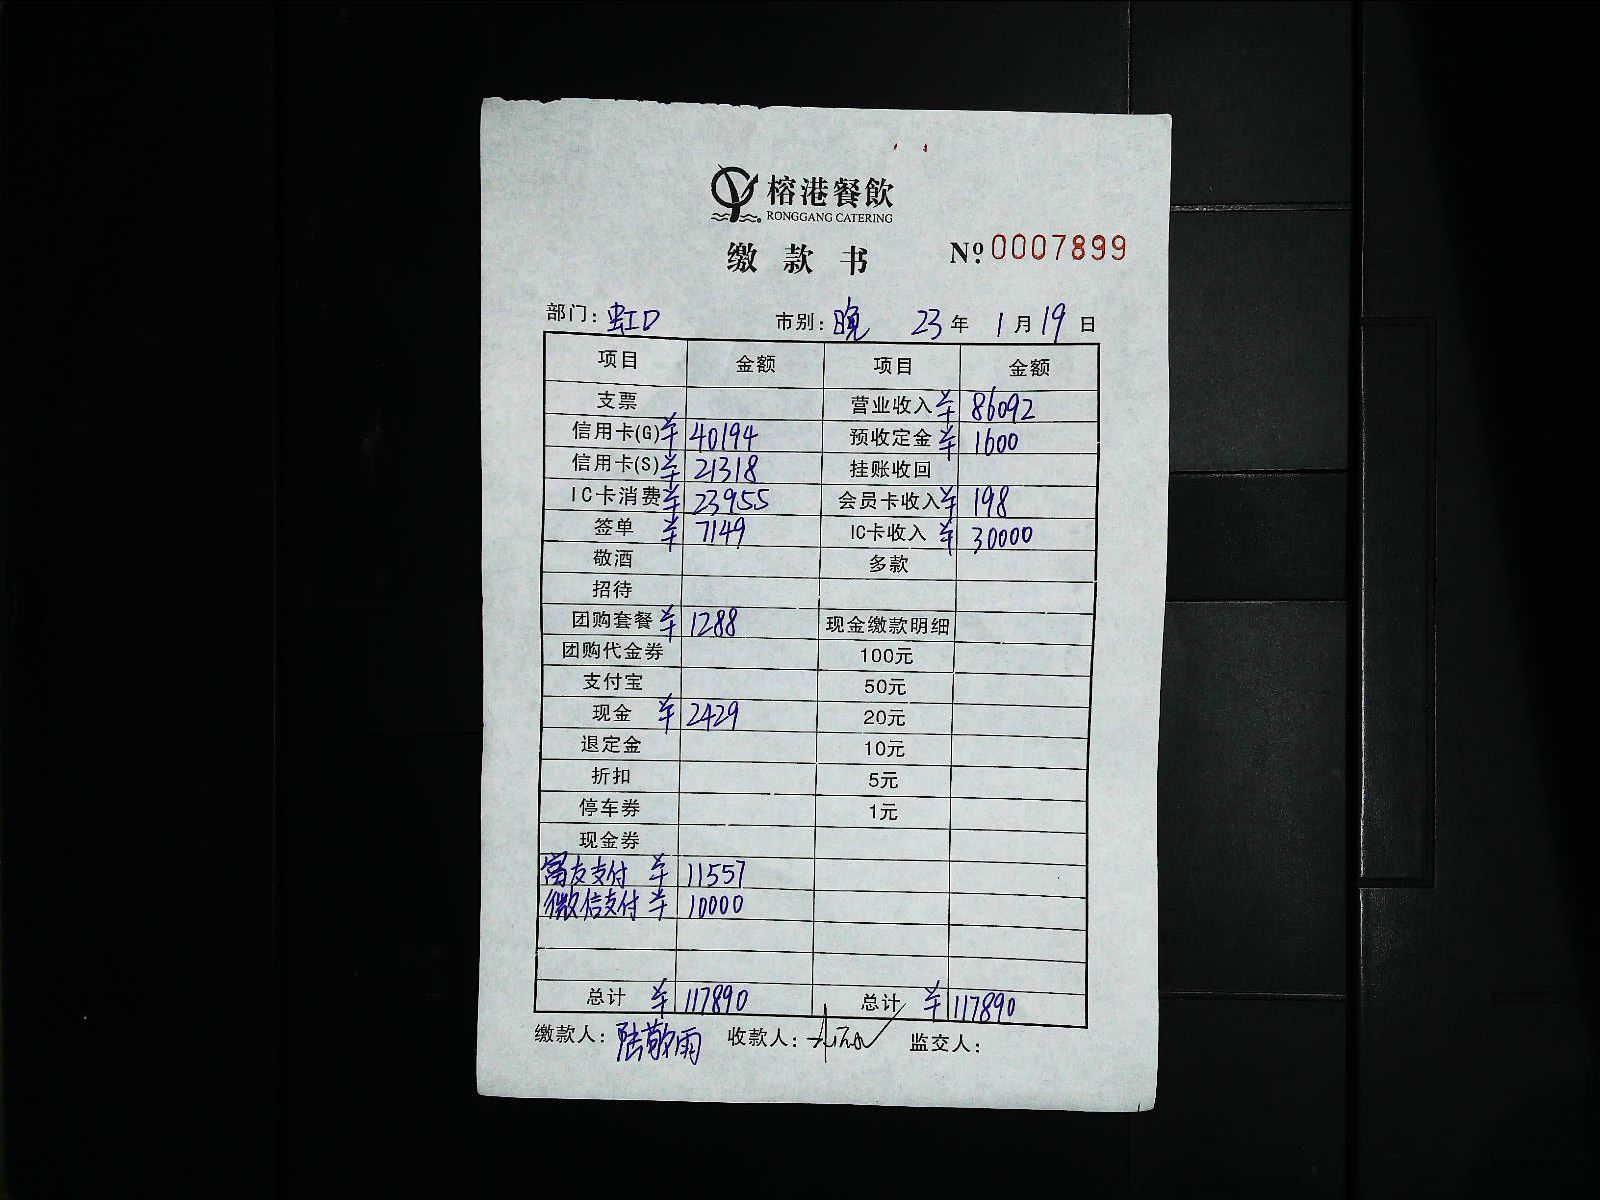 榕港餐飲
RONGGANG CATERING
缴款书 №0007899
部门：虹口 市别：晚 23年1月19日
项目 金额 项目 金额
支票 营业收入 ¥ 86092
信用卡(G) ¥ 40194 预收定金 ¥ 1600
信用卡(S) ¥ 21318 挂账收回
IC卡消费 ¥ 23955 会员卡收入 ¥ 198
签单 ¥ 7149 IC卡收入 ¥ 30000
敬酒 多款
招待
团购套餐 ¥ 1288 现金缴款明细
团购代金券 100元
支付宝 50元
现金 ¥ 2429 20元
退定金 10元
折扣 5元
停车券 1元
现金券
富友支付 ¥ 11557
微信支付 ¥ 10000
总计 ¥ 117890 总计 ¥ 117890
缴款人：陆敬雨 收款人： 监交人：